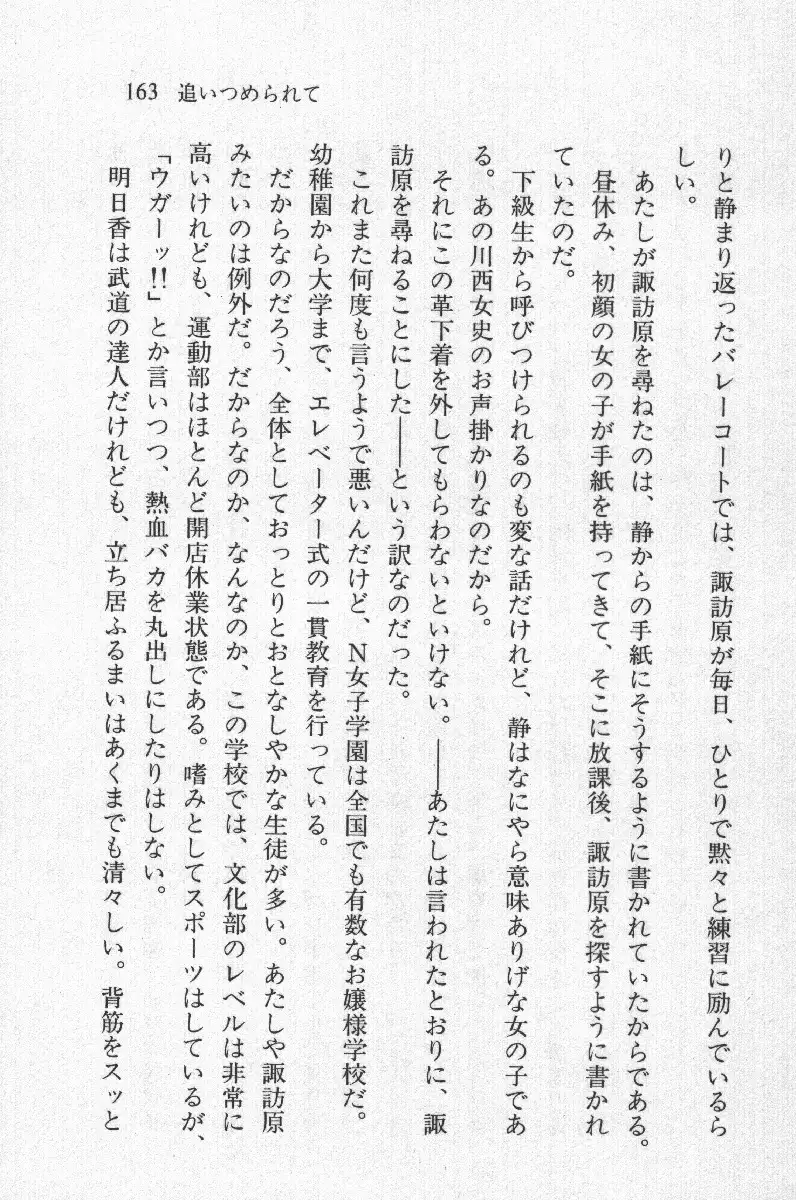 163 追いつめられて
りと静まり返ったバレーコートでは、諏訪原が毎日、ひとりで黙々と練習に励んでいるら
しい。
あたしが諏訪原を尋ねたのは、静からの手紙にそうするように書かれていたからである。
昼休み、初顔の女の子が手紙を持ってきて、そこに放課後、諏訪原を探すように書かれ
ていたのだ。
下級生から呼びつけられるのも変な話だけれど、静はなにやら意味ありげな女の子であ
る。あの川西女史のお声掛かりなのだから。
それにこの革下着を外してもらわないといけない。――あたしは言われたとおりに、諏
訪原を尋ねることにした――という訳なのだった。
これまた何度も言うようで悪いんだけど、N女子学園は全国でも有数なお嬢様学校だ。
幼稚園から大学まで、エレベーター式の一貫教育を行っている。
だからなのだろう、全体としておっとりとおとなしやかな生徒が多い。あたしや諏訪原
みたいのは例外だ。だからなのか、なんなのか、この学校では、文化部のレベルは非常に
高いけれども、運動部はほとんど開店休業状態である。嗜みとしてスポーツはしているが、
「ウガーッ!!」とか言いつつ、熱血バカを丸出しにしたりはしない。
明日香は武道の達人だけれども、立ち居ふるまいはあくまでも清々しい。背筋をスッと